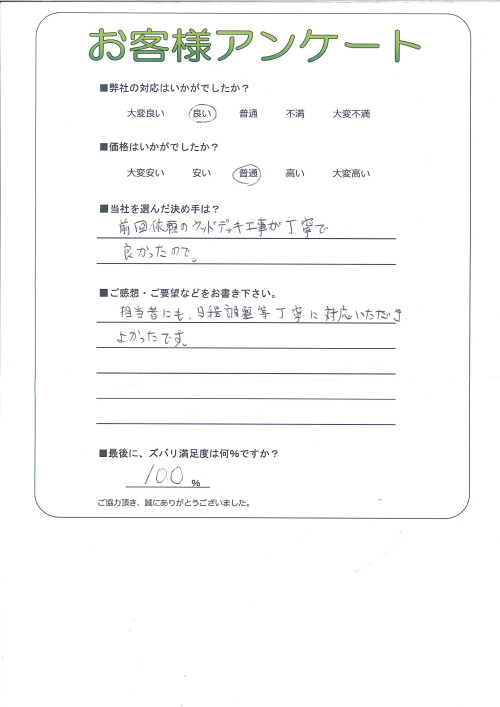 お客様アンケート
■弊社の対応はいかがでしたか？
大変良い 良い 普通 不満 大変不満
■価格はいかがでしたか？
大変安い 安い 普通 高い 大変高い
■当社を選んだ決め手は？
前回依頼のウッドデッキ工事が丁寧で
良かったので。
■ご感想・ご要望などをお書き下さい。
担当者にも、日程調整等丁寧に対応いただき
よかったです。
■最後に、ズバリ満足度は何%ですか？
100 %
ご協力頂き、誠にありがとうございました。